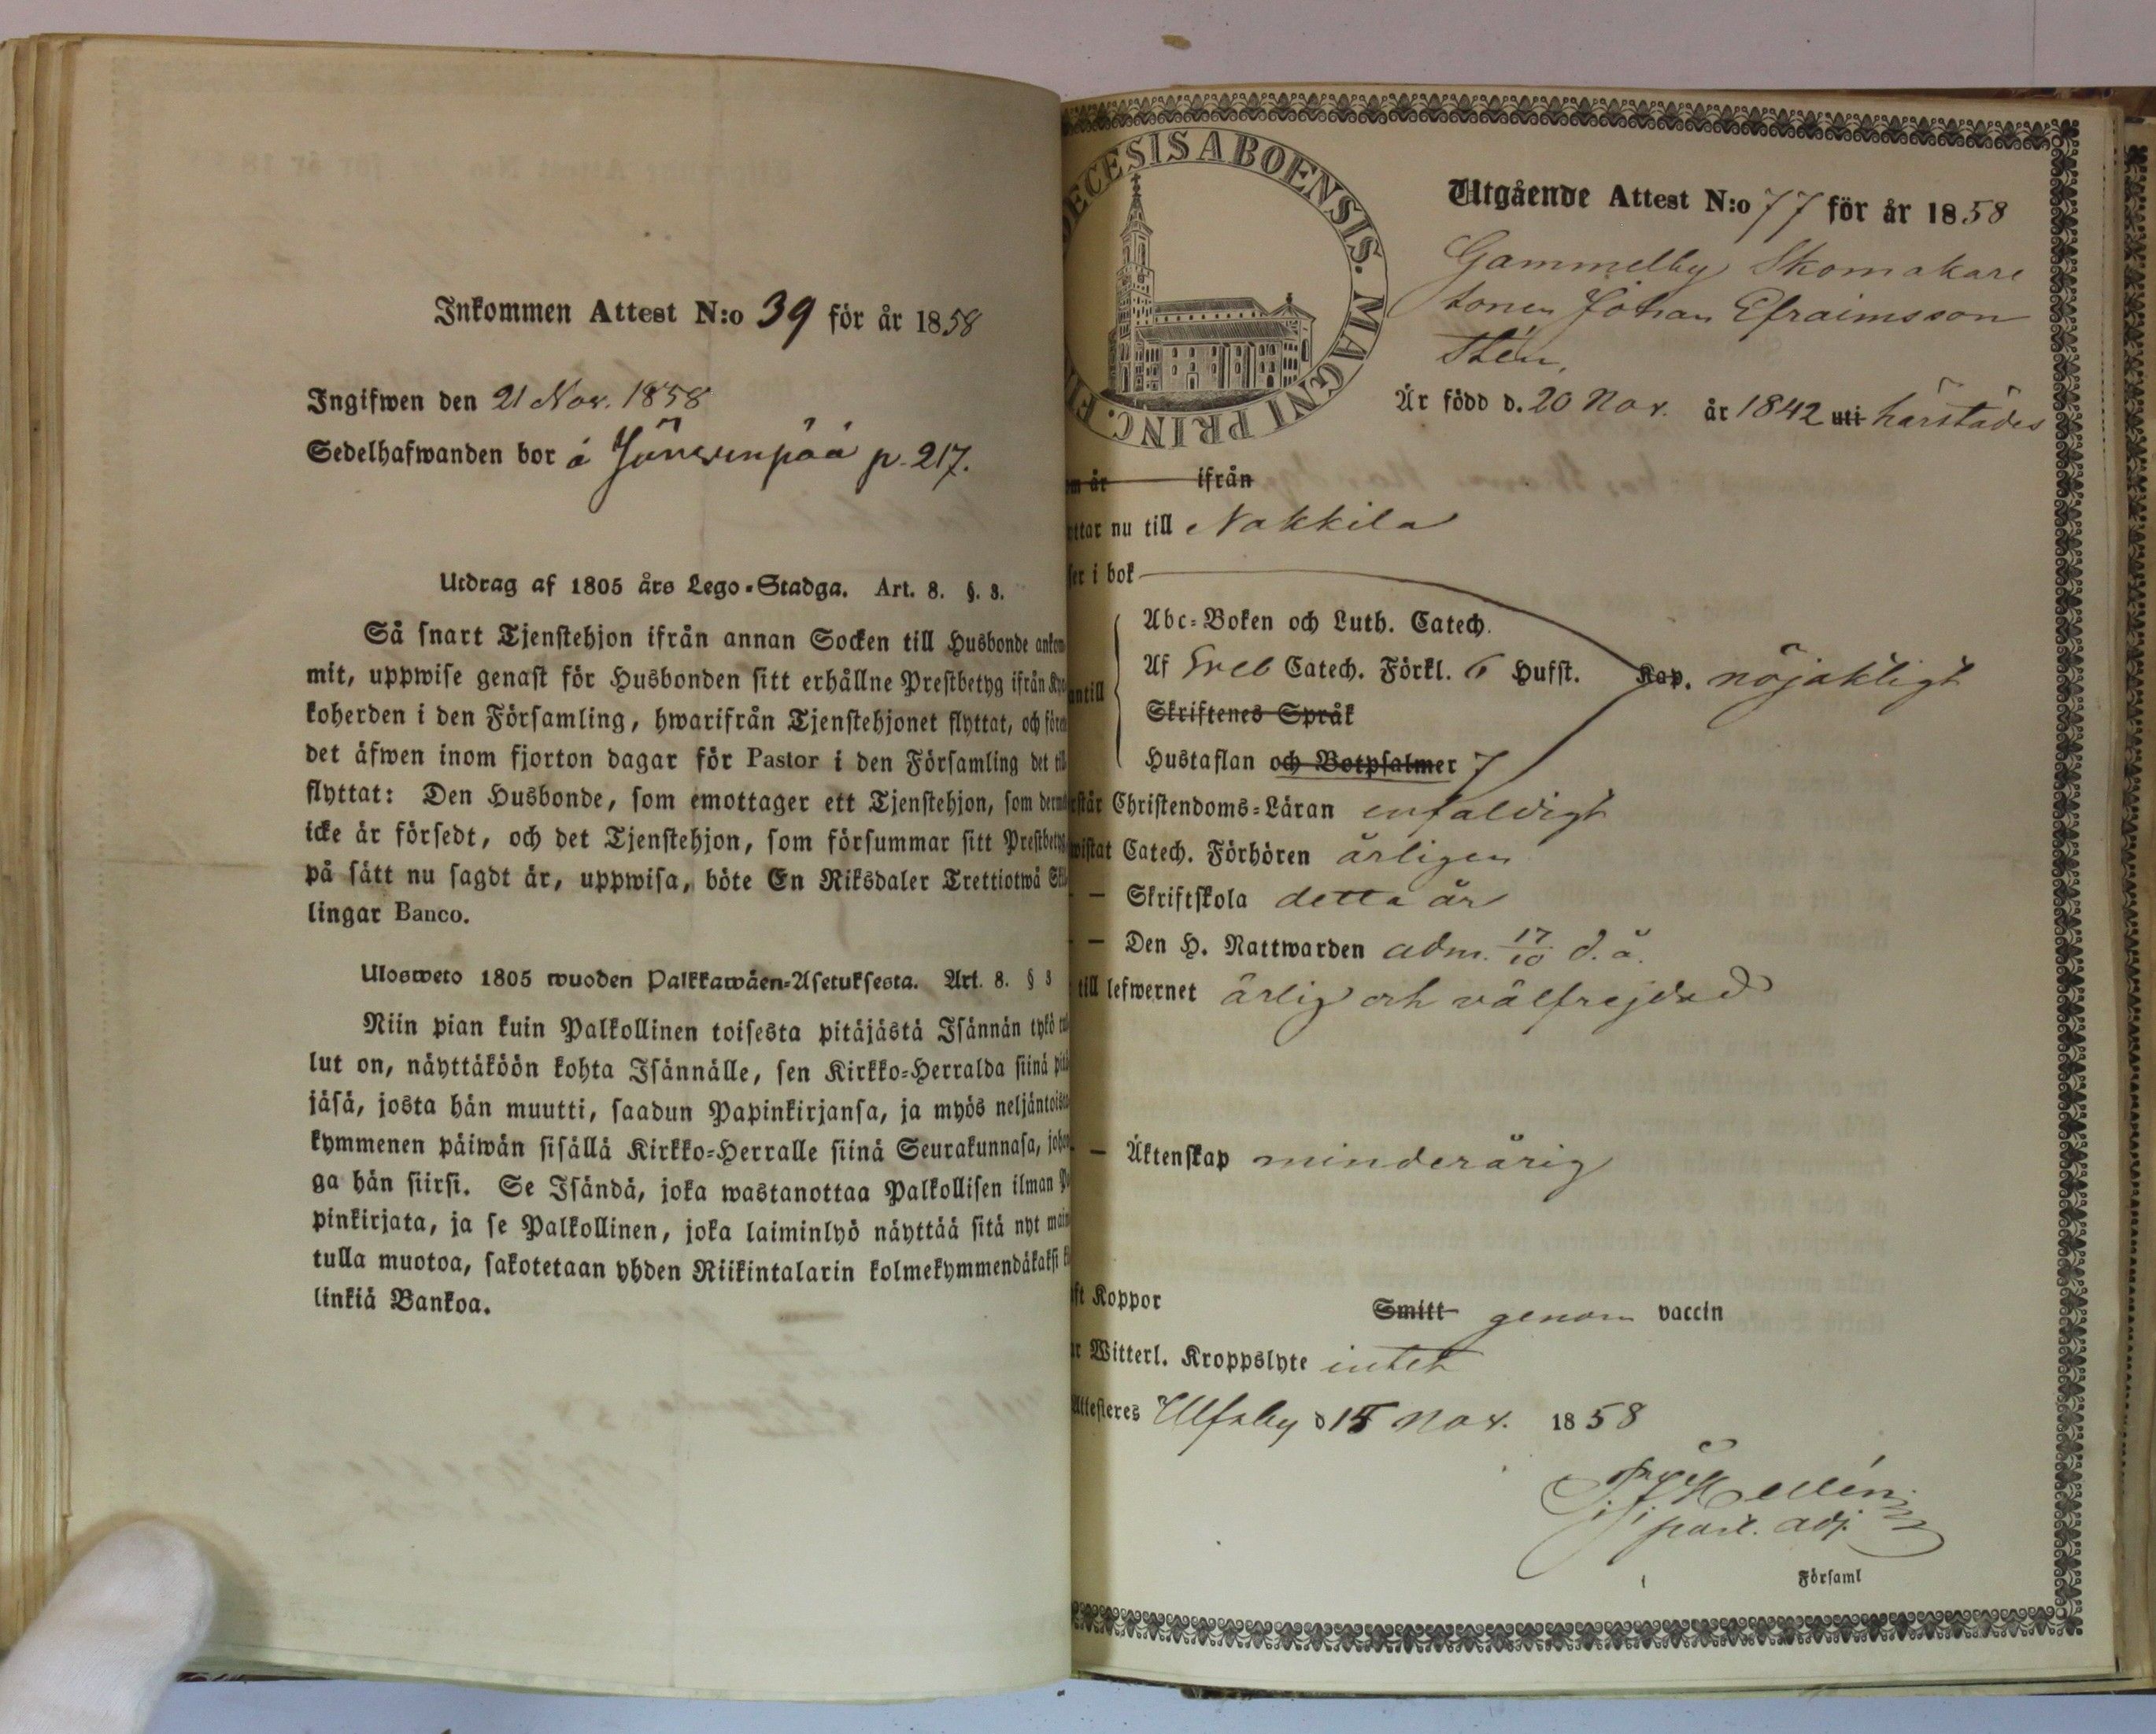 Inkommen Attest N:o 39 för år 1858
Ingifwen den 21 Nov. 1858
Sedelhafwanden bor å p. 217.
Utdrag af 1805 års Lego-Stadga. Art. 8. §. 3.
Så snart Tjenstehjon ifrån annan Socken till Husbonde ankom
mit, uppwise genast för Husbonden sitt erhållne Prestbetyg ifrån Kyr
koherden i den Församling, hwarifrån Tjenstehjonet flyttat, och före
det äfwen inom fjorton dagar för Pastor i den Församling det till
flyttat: Den Husbonde, som emottager ett Tjenstehjon, som dermed
icke är försedt, och det Tjenstehjon, som försummar sitt Prestbetyg
på sätt nu sagdt är, uppwisa, böte En Riksdaler Trettiotwå Skil
lingar Banco.
Ulosweto 1805 wuoden Palkkawäen-Asetuksesta. Art. 8. § 3
Niin pian kuin Palkollinen toisesta pitäjästä Isännän tykö tul
lut on, näyttäköön kohta Isännälle, sen Kirkko-Herralda siinä pitä
jäsä, josta hän muutti, saadun Papinkirjansa, ja myös neljäntoista
kymmenen päiwän sisällä Kirkko-Herralle siinä Seurakunnasa, johon
ga hän siirsi. Se Isändä, joka wastanottaa Palkollisen ilman Pa
pinkirjata, ja se Palkollinen, joka laiminlyö näyttää sitä nyt mainit
tulla muotoa, sakotetaan yhden Riikintalarin kolmekymmendäkaksi
linkiä Bankoa.
DECESIS ABOENSIS. MAGNI PRINC. FI
Utgående Attest N:o 77 för år 1858
Gammelby Skomakare
sonen Johan Efraimsson
Stén,
Är född d. 20 Nov. år 1842 uti härstädes
m år ifrån
yttar nu till Nakkila
ser i bok
Abc-Boken och Luth. Catech.
Af Sveb Catech. Förkl. 6 Hufst. Kap. nöjaktligt
antill
Skriftenes Språk
Hustaflan och Botpsalmer 7
rstår Christendoms-Läran enfaldigt
wistat Catech. Förhören årligen
— Skriftskola detta år
— Den H. Nattwarden adm. 17/10 d. å.
till lefwernet ärlig och välfrejdad
— Äktenskap minderårig
ft Koppor Smitt genom vaccin
r Witterl. Kroppslyte intet
Attesteres Ulfsby d 15 Nov. 1858
Hellén
past. adj.
Församl